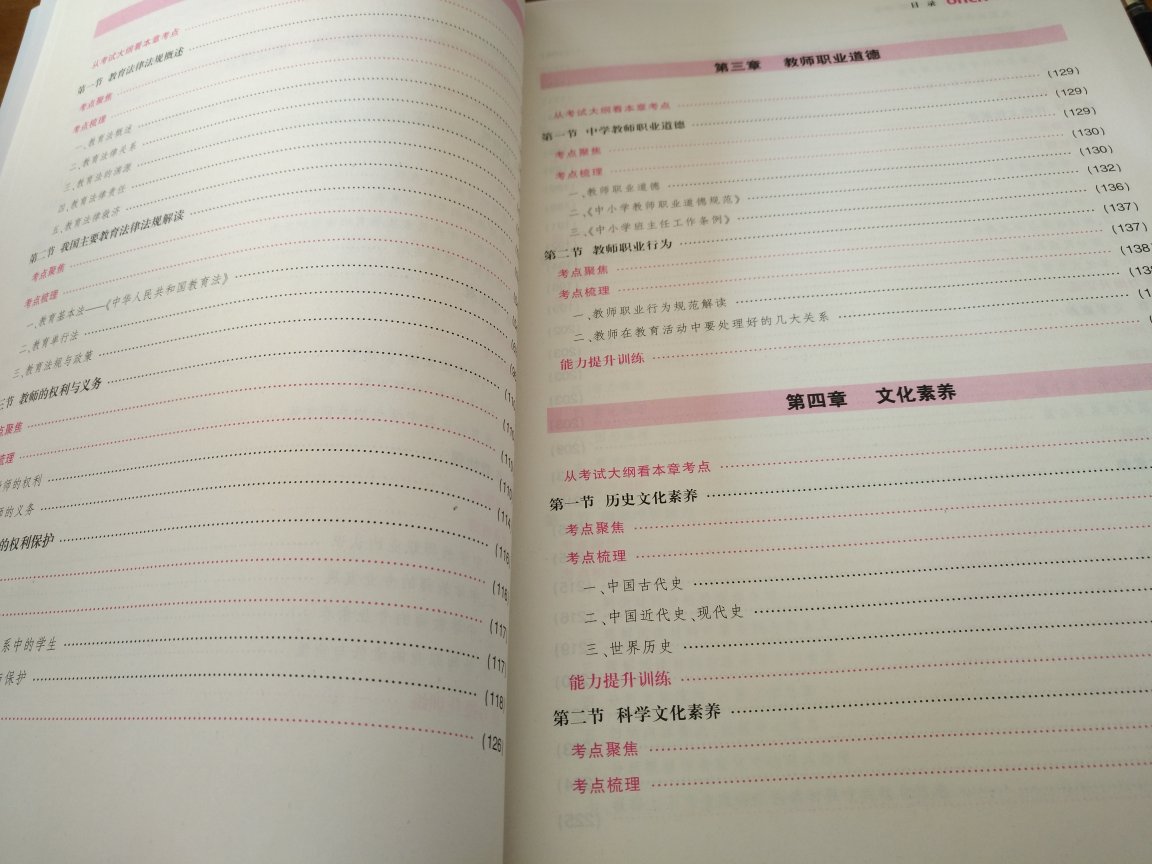 从考试大纲看本章考点
第一节 教育法律法规概述
考点聚焦
考点梳理
一、教育法概述
二、教育法律关系
三、教育法的渊源
四、教育法律责任
五、教育法律救济
第二节 我国主要教育法律法规解读
考点聚焦
考点梳理
一、教育基本法——《中华人民共和国教育法》
二、教育单行法
三、教育法规与政策
节 教师的权利与义务
点聚焦 (110)
梳理 (110)
师的权利 (110)
师的义务 (114)
的权利保护 (116)
(116)
(117)
系中的学生 (117)
保护 (118)
(126)
目 录
第三章 教师职业道德
从考试大纲看本章考点 (129)
第一节 中学教师职业道德 (129)
考点聚焦 (129)
考点梳理 (130)
一、教师职业道德 (130)
二、《中小学教师职业道德规范》 (132)
三、《中小学班主任工作条例》 (136)
第二节 教师职业行为 (137)
考点聚焦 (137)
考点梳理 (138)
一、教师职业行为规范解读
二、教师在教育活动中要处理好的几大关系
能力提升训练
第四章 文化素养
从考试大纲看本章考点
第一节 历史文化素养
考点聚焦
考点梳理
一、中国古代史
二、中国近代史、现代史
三、世界历史
能力提升训练
第二节 科学文化素养
考点聚焦
考点梳理